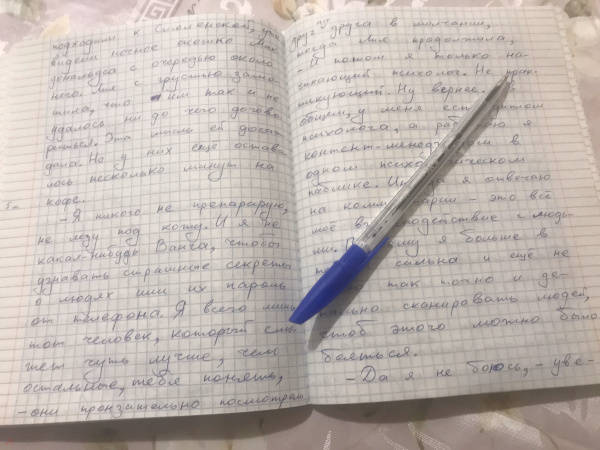 подходили к Смоленской, уже
видели ночное окошко Мак
дональдса с очередью около
него. Аня с грустью заме-
тила, что им так и не
удалось ни до чего догово-
риться. Эта мысль ей доса-
дила. Но у них ещё остава-
лось несколько минут на
кофе.
– Я никого не препарирую,
не лезу под кожу. И я не
какая-нибудь Ванга, чтобы
узнавать страшные секреты
о людях или их пароль
от телефона. Я всего лишь
тот человек, который смо-
жет чуть лучше, чем
остальные, тебя понять,
– они пронзительно посмотрели
друг друга в молчании,
тогда Аня продолжила,
– И потом я только на-
чинающий психолог. Не прак-
тикующий. Ну вернее. В
общем, у меня есть диплом
психолога, а работаю я
контент-менеджером в
одном психологическом
паблике. Иногда я отвечаю
на комментарии – это всё
моё взаимодействие с людь-
ми. Поэтому я больше в
сильна и ещё не
так точно и де-
тально сканировать людей,
чтоб этого можно было
бояться.
– Да я не боюсь, – уве-